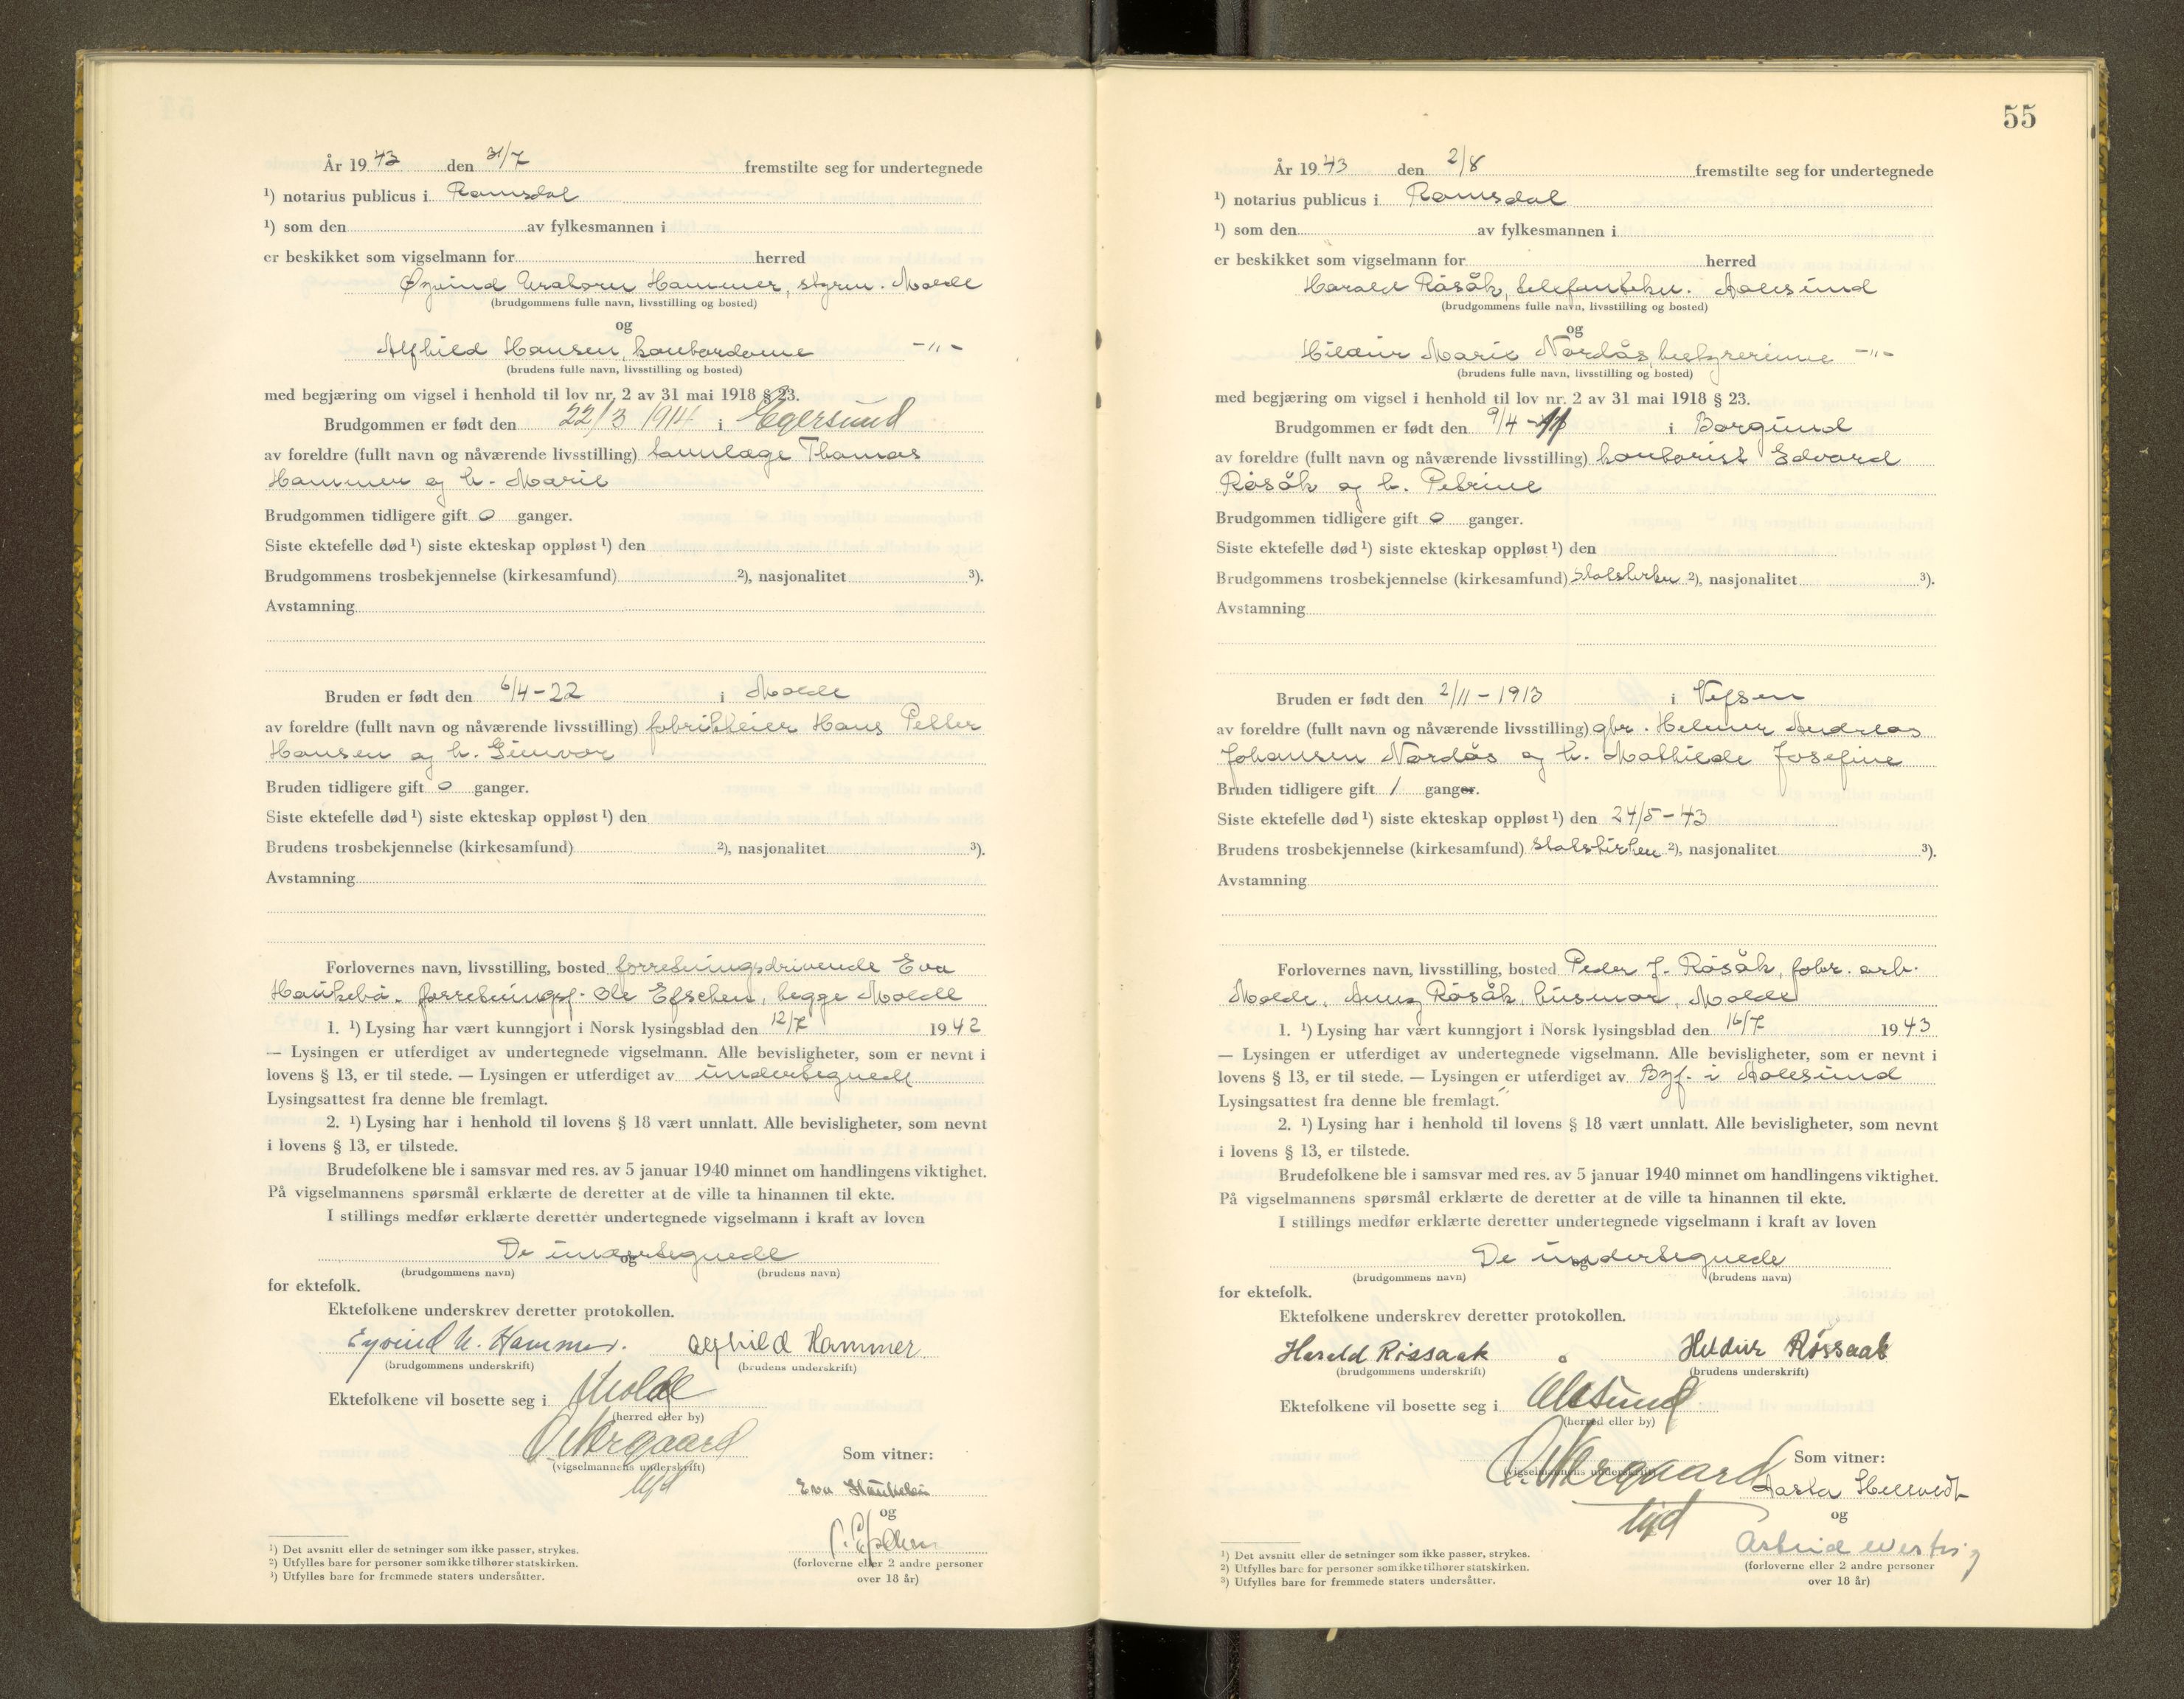 År 19 43 den 31/7 fremstilte seg for undertegnede
¹) notarius publicus i Romsdal
¹) som den av fylkesmannen i
er beskikket som vigselmann for herred
Øyvind Hammer, styrm. Molde
(brudgommens fulle navn, livsstilling og bosted)
og
Alfhild Hansen, kontordame -"-
(brudens fulle navn, livsstilling og bosted)
med begjæring om vigsel i henhold til lov nr. 2 av 31 mai 1918 § 23.
Brudgommen er født den 22/3 1914 i Egersund
av foreldre (fullt navn og nåværende livsstilling) tannlæge Thomas
Hammer og h. Marie
Brudgommen tidligere gift 0 ganger.
Siste ektefelle død ¹) siste ekteskap oppløst ¹) den
Brudgommens trosbekjennelse (kirkesamfund) ²), nasjonalitet ³).
Avstamning
Bruden er født den 6/4-22 i Molde
av foreldre (fullt navn og nåværende livsstilling) fabrikkeier Hans Petter
Hansen og h. Gunvor
Bruden tidligere gift 0 ganger.
Siste ektefelle død ¹) siste ekteskap oppløst ¹) den
Brudens trosbekjennelse (kirkesamfund) ²), nasjonalitet ³).
Avstamning
Forlovernes navn, livsstilling, bosted forretningsdrivende Eva
Haukebø. forretningsf. Ole Efschen, begge Molde
1. ¹) Lysing har vært kunngjort i Norsk lysingsblad den 12/7 19 42
— Lysingen er utferdiget av undertegnede vigselmann. Alle bevisligheter, som er nevnt i
lovens § 13, er til stede. — Lysingen er utferdiget av undertegnede
Lysingsattest fra denne ble fremlagt.
2. ¹) Lysing har i henhold til lovens § 18 vært unnlatt. Alle bevisligheter, som nevnt
i lovens § 13, er tilstede.
Brudefolkene ble i samsvar med res. av 5 januar 1940 minnet om handlingens viktighet.
På vigselmannens spørsmål erklærte de deretter at de ville ta hinannen til ekte.
I stillings medfør erklærte deretter undertegnede vigselmann i kraft av loven
De undertegnede
og
(brudgommens navn) (brudens navn)
for ektefolk.
Ektefolkene underskrev deretter protokollen.
Eyvind U. Hammer. Alfhild Hammer
(brudgommens underskrift) (brudens underskrift)
Ektefolkene vil bosette seg i Molde
(herred eller by)
Som vitner:
(vigselmannens underskrift)
Eva Haukebø
og
(forloverne eller 2 andre personer
over 18 år)
¹) Det avsnitt eller de setninger som ikke passer, strykes.
²) Utfylles bare for personer som ikke tilhører statskirken.
³) Utfylles bare for fremmede staters undersåtter.
55
År 19 43 den 2/8 fremstilte seg for undertegnede
¹) notarius publicus i Romsdal
¹) som den av fylkesmannen i
er beskikket som vigselmann for herred
Harald Røsåk, telefontekn. Aalesund
(brudgommens fulle navn, livsstilling og bosted)
og
Hildur Marie Nordås, bestyrerinne -"-
(brudens fulle navn, livsstilling og bosted)
med begjæring om vigsel i henhold til lov nr. 2 av 31 mai 1918 § 23.
Brudgommen er født den 9/4 i Borgund
av foreldre (fullt navn og nåværende livsstilling) kontorist Edvard
Røsåk og h. Petrine
Brudgommen tidligere gift 0 ganger.
Siste ektefelle død ¹) siste ekteskap oppløst ¹) den
Brudgommens trosbekjennelse (kirkesamfund) statskirken ²), nasjonalitet ³).
Avstamning
Bruden er født den 2/11-1913 i Vefsen
av foreldre (fullt navn og nåværende livsstilling) gbr. Helmer Andreas
Johansen Nordås og h. Mathilde Josefine
Bruden tidligere gift 1 ganger.
Siste ektefelle død ¹) siste ekteskap oppløst ¹) den 24/5-43
Brudens trosbekjennelse (kirkesamfund) statskirken ²), nasjonalitet ³).
Avstamning
Forlovernes navn, livsstilling, bosted Peder J. Røsåk, fabr. arb.
Molde, Anna Røsåk, husmor, Molde
1. ¹) Lysing har vært kunngjort i Norsk lysingsblad den 16/7 19 43
— Lysingen er utferdiget av undertegnede vigselmann. Alle bevisligheter, som er nevnt i
lovens § 13, er til stede. — Lysingen er utferdiget av Byf. i Aalesund
Lysingsattest fra denne ble fremlagt.
2. ¹) Lysing har i henhold til lovens § 18 vært unnlatt. Alle bevisligheter, som nevnt
i lovens § 13, er tilstede.
Brudefolkene ble i samsvar med res. av 5 januar 1940 minnet om handlingens viktighet.
På vigselmannens spørsmål erklærte de deretter at de ville ta hinannen til ekte.
I stillings medfør erklærte deretter undertegnede vigselmann i kraft av loven
De undertegnede
og
(brudgommens navn) (brudens navn)
for ektefolk.
Ektefolkene underskrev deretter protokollen.
Harald Røssaak Hildur Røssaak
(brudgommens underskrift) (brudens underskrift)
Ektefolkene vil bosette seg i Ålesund
(herred eller by)
Som vitner:
(vigselmannens underskrift)
og
Astrid
(forloverne eller 2 andre personer
over 18 år)
¹) Det avsnitt eller de setninger som ikke passer, strykes.
²) Utfylles bare for personer som ikke tilhører statskirken.
³) Utfylles bare for fremmede staters undersåtter.